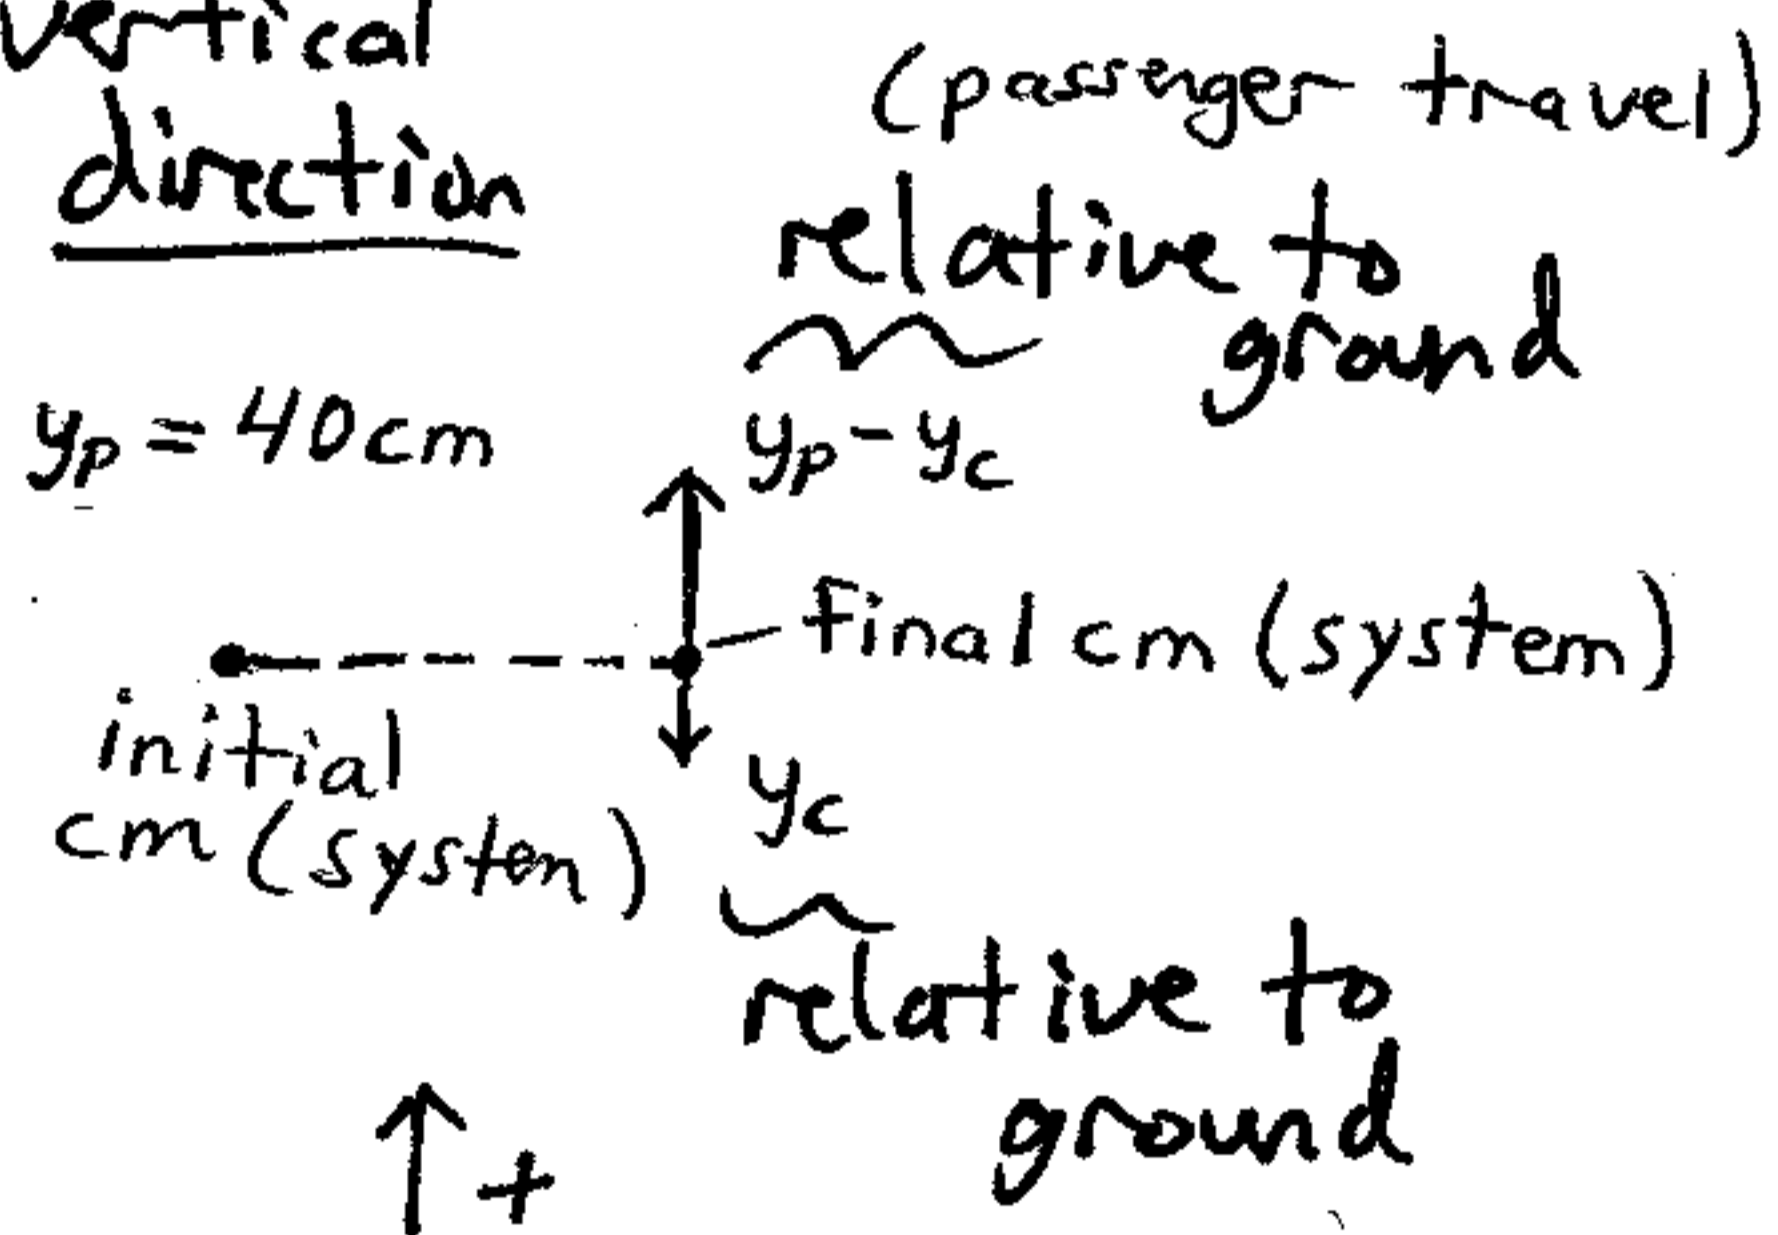 vertical
direction
(passenger travel)
relative to
ground
yp = 40cm
yp - yc
final cm (system)
initial
cm (system)
yc
relative to
ground
+